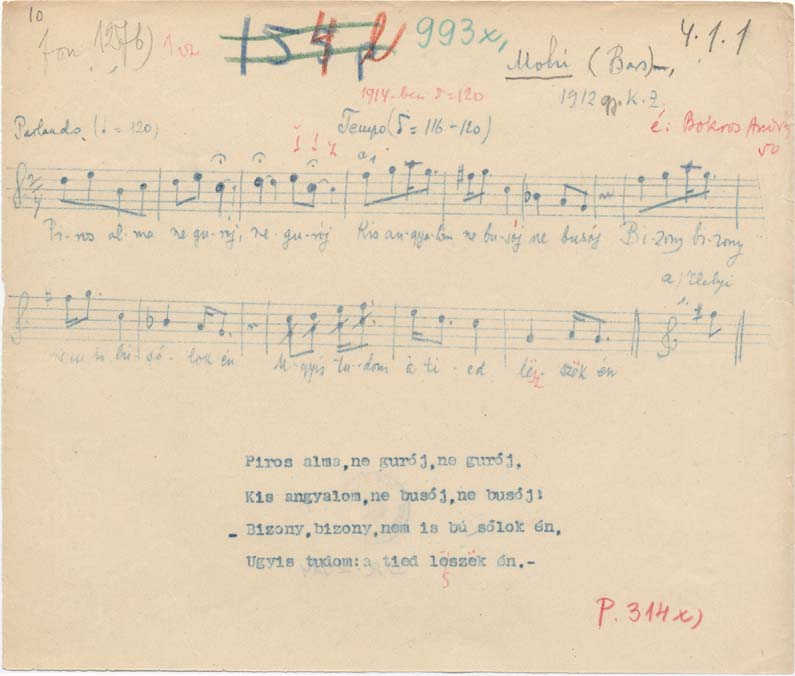 10
fon. 127b) 1 vz
134 l
993x,
4.1.1
Mohi (Bars)m,
1914-ben ♪=120
1912 gy. K. Z.
Parlando. (♩ = 120)
Tempo (♪ = 116 - 120)
é: Bokros András
50
Pi-ros al-ma ne gu-rój, ne-gu-rój Kis an-gya-lom ne bu-sój ne busój Bi-zony bi-zony
a) Helyi
1.
nem is bú-só-lok én U-gyis tu-dom a ti-ed lësz-szök én
Piros alma,ne gurój,ne gurój,
Kis angyalom,ne busój,ne busój!
- Bizony,bizony,nem is bú sólok én,
Ugyis tudom:a tied lëszëk én.-
P. 314x)